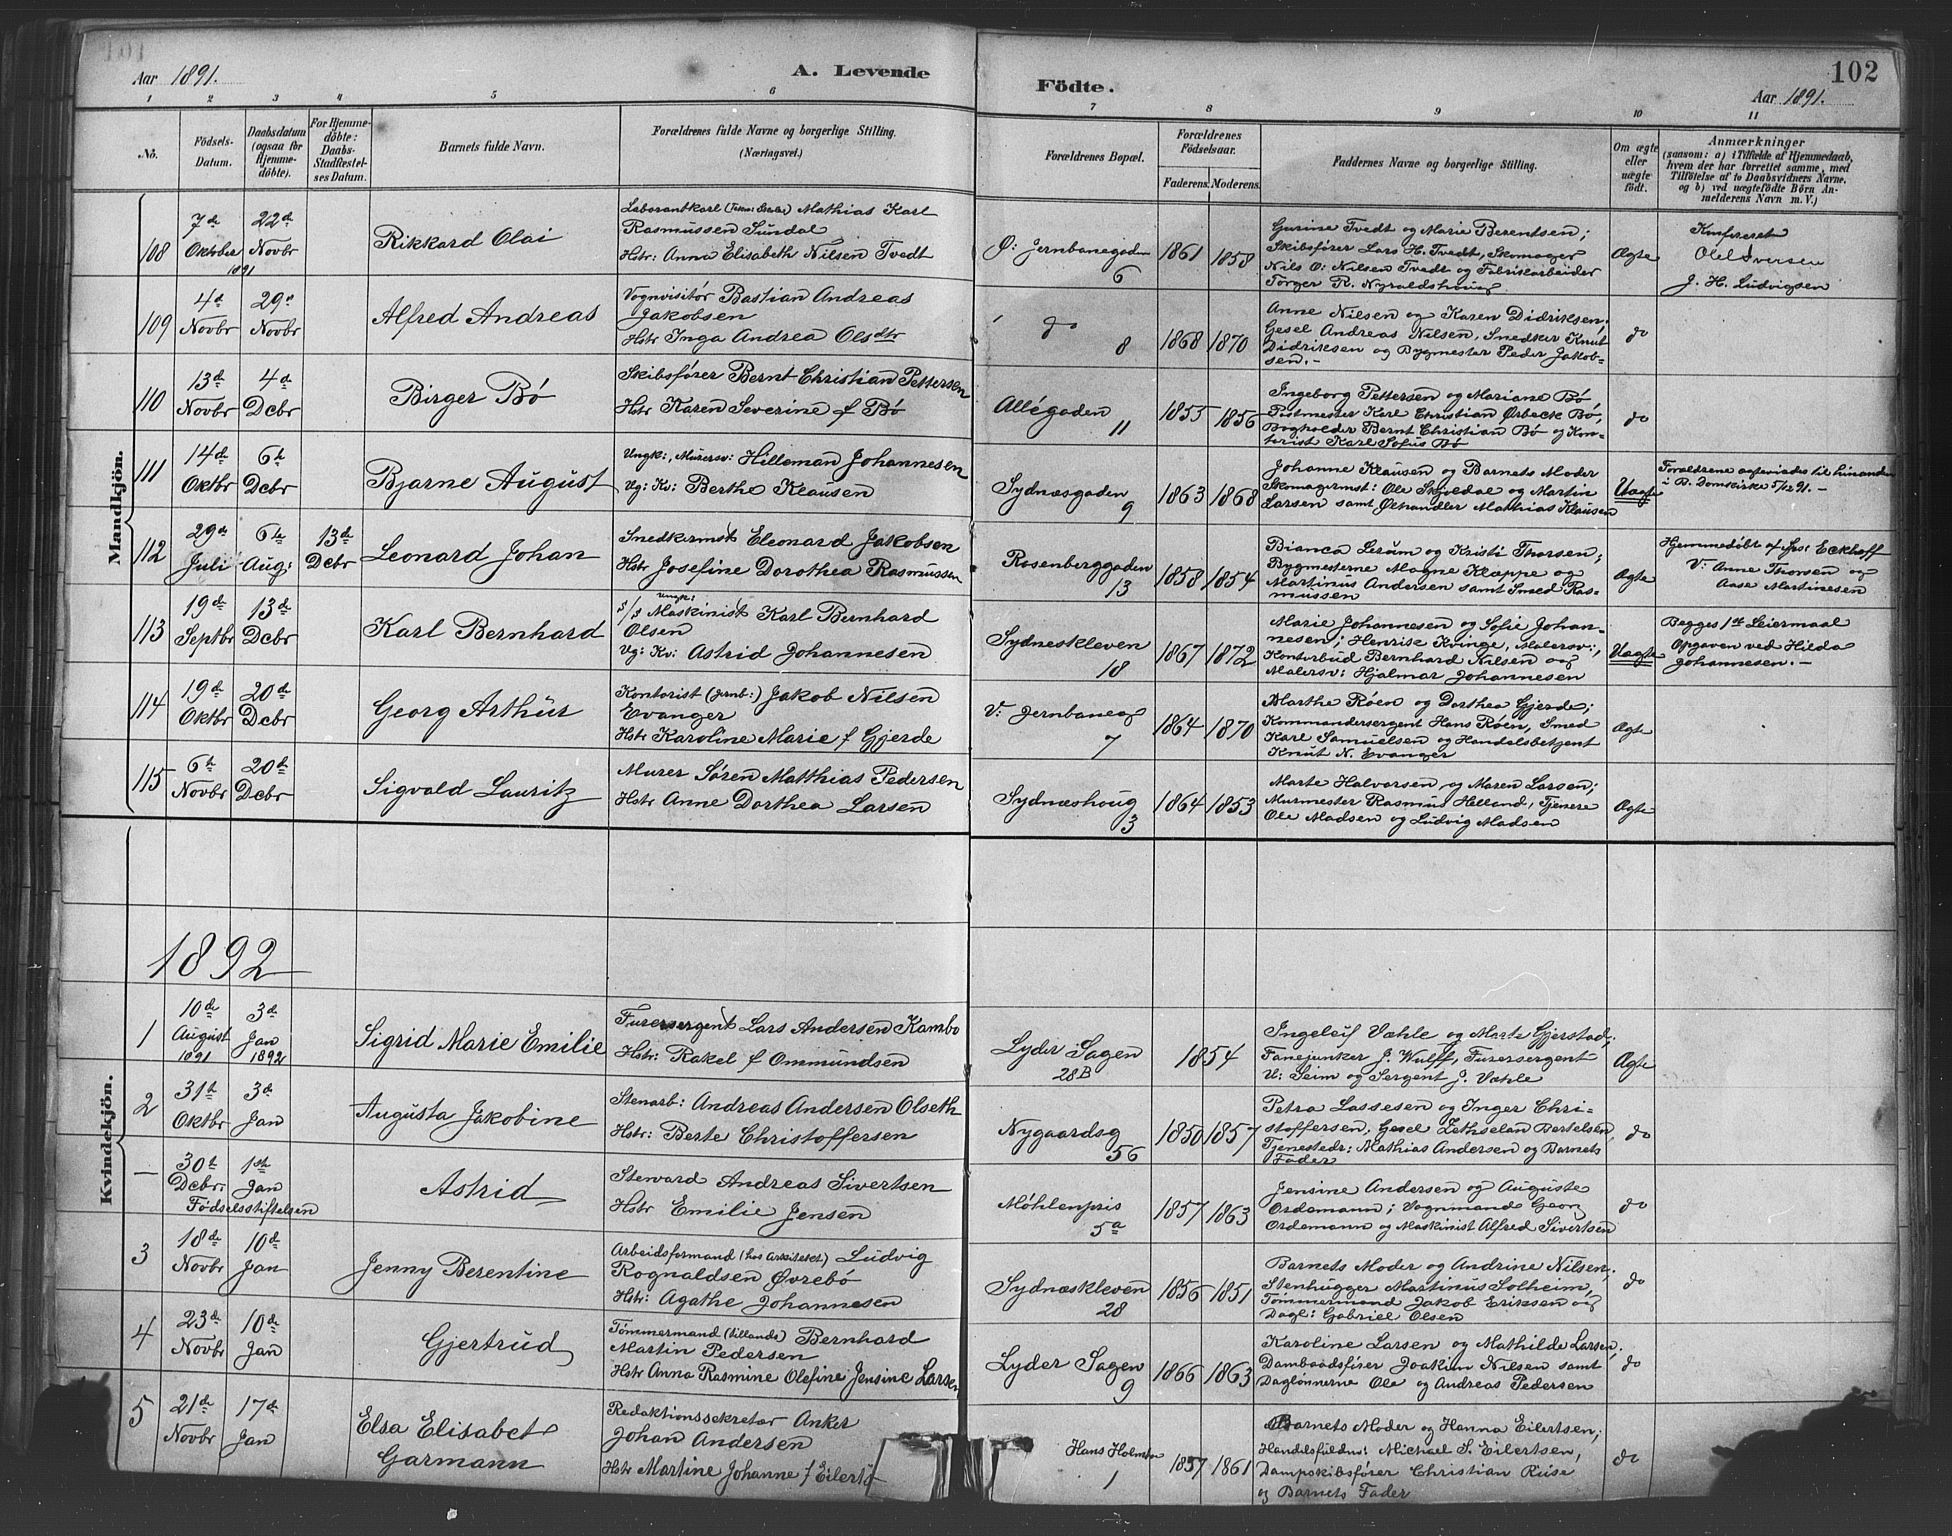 Aar 1891.
A. Levende
Födte.
102
Aar 1891.
1 2 3 4 5 6 7 8 9 10 11
No.
Födsels-Datum.
Daabsdatum (ogsaa for Hjemmedöbte).
For Hjemmedöbte: Daabs-Stadfæstelses Datum.
Barnets fulde Navn.
Forældrenes fulde Navne og borgerlige Stilling.
(Næringsvei.)
Forældrenes Bopæl.
Forældrenes Födselsaar.
Faderens. Moderens.
Faddernes Navne og borgerlige Stilling.
Om ægte eller uægte födt.
Anmærkninger
(saasom: a) i Tilfælde af Hjemmedaab,
hvem der har forrettet samme, med
Tilföielse af to Daabsvidners Navne.
og b) ved uægtefödte Börn An-
melderens Navn m. V.)
Mandkjön.
108
7de Oktober 1891
22de Novbr
Rikkard Olai
Laborantkarl Mathias Karl
Rasmussen Sundal
Hstr: Anna Elisabeth Nilsen Tvedt
Ø: Jernbanegaden
6
1861 1858
Gurine Tvedt og Marie Berentsen;
Skibsfører Lars H. Tvedt, Skomager
Nils O: Nilsen Tvedt og Fabrikarbeider
Torger R.
Ægte
Konfereret
Olel Iversen
J. H. Ludvigsen
109
4d Novbr
29d Novbr
Alfred Andreas
Vognvisitör Bastian Andreas
Jakobsen
Hstr Inga Andrea Olsdtr
do
8
1868 1870
Anne Nilsen og Karen Didriksen;
Gesel Andreas Nilsen, Snedker Knut
Didriksen og Bygmester Peder Jakob-
sen. -
do
110
13de Novbr
4de Dcbr
Birger Bö
Skibsfører Bernt Christian Pettersen
Hstr Karen Severine f Bö
Allégaden
11
1855 1856
Ingeborg Pettersen og Mariane Bö,
Postmester Karl Christian Ørbeck Bö,
Bogholder Bernt Christian Bö og Kon-
torist Karl Sofus Bö
do
111
14de Oktbr
6te Dcbr
Bjarne August
Ungk:, Murersv: Hilleman Johannesen
Ug: Kv: Berthe Klausen
Sydnæsgaden
9
1863 1868
Johanne Klausen og Barnets Moder
Skomagermst: Ole Skjeldal og Martin
Larsen samt Ølhandler Mathias Klausen
Uægte
Forældrene ægteviedes til hinanden
i B. Domkirke 5/12 91. -
112
29de Juli
6te Aug:
13de Dcbr
Leonard Johan
Snedkermst Eleonard Jakobsen
Hstr Josefine Dorothea Rasmussen
Rosenberggaden
13
1858 1854
Bianca Lerum og Kristi Thorsen;
Bygmesterne Magne Klæppe og
Martinus Andersen samt Smed Ras-
mussen
Ægte
Hjemmedöbt af Eckhoff
V: Anne Thorsen og
Aase Martinesen
113
19de Septbr
13de Dcbr
Karl Bernhard
Ungk:
s/s Maskinist Karl Bernhard
Olsen
Ug: Kv: Astrid Johannesen
Sydneskleven
18
1867 1872
Marie Johannesen og Sofie Johan-
nesen; Henrik Kvinge, Malersv:,
Kontorbud Bernhard Nilsen og
Malersv: Hjalmar Johannesen
Uægte
Begges 1ste Leiermaal
Opgaven ved Hilda
Johannesen. -
114
19de Oktbr
20de Dcbr
Georg Arthur
Kontorist (Jernb:) Jakob Nilsen
Evanger
Hstr Karoline Marie f Gjerde
V: Jernbaneg
7
1864 1870
Marthe Röen og Dorthea Gjerde;
Kommandersergent Hans Röen, Smed
Karl Samuelsen og Handelsbetjent
Knut N. Evanger
Ægte
115
6te Novbr
20de Dcbr
Sigvald Lauritz
Murer Sören Matthias Pedersen
Hstr Anne Dorthea Larsen
Sydnæshoug
3
1864 1853
Marte Halvorsen og Maren Larsen;
Murmester Rasmus Helland, Tjenere
Ole Madsen og Ludvig Madsen
Ægte
1892
Kvindekjön.
1
10de August 1891
3de Jan 1892
Sigrid Marie Emilie
Furersergent Lars Andersen Kambo
Hstr: Rakel f Ommundsen
Lyder Sagen
28B
1854
Ingeleif Væhle og Marte Gjerstad;
Fanejunker J. Wulff, Furersergent
U: Seim og Sergent J. Væhle
Ægte
2
31te Oktbr
3de Jan
Augusta Jakobine
Stenarb: Andreas Andersen Olseth
Hstr: Berte Christoffersen
Nygaardsg
56
1850 1857
Petra Lassesen og Inger Chri-
stoffersen; Gesel Zethselan Bertelsen,
Tjenestedr: Mathias Andersen og Barnets
Fader
do
—
30te Dcbr
1ste Jan
Födselsstiftelsen
Astrid
Steward Andreas Sivertsen
Hstr Emilie Jensen
Möhlenpris
5a
1857 1863
Jensine Andersen og Auguste
Ordemann; Vognmand Georg
Ordemann og Maskinist Alfred Sivertsen
do
3
18de Novbr
10de Jan
Jenny Berentine
Arbeidsformand (hos Arkitekt) Ludvig
Rognaldsen Övrebö
Hstr: Agathe Johannesen
Sydnæskleven
28
1856 1851
Barnets Moder og Andrine Nilsen;
Stenhugger Martinus Solheim,
Tömmermand Jakob Eriksen og
Dagl: Gabriel Olsen
do
4
23de Novbr
10de Jan
Gjertrud
Tömmermand (tillands) Bernhard
Martin Pedersen
Hstr Anna Rasmine Olefine Jensine Larsen
Lyder Sagen
9
1866 1863
Karoline Larsen og Mathilde Larsen;
Dambaadsförer Joakim Nilsen samt
Daglönnerne Ole og Andreas Pedersen
do
5
21de Novbr
17de Jan
Elsa Elisabet
Garmann
Redaktionssekretær Anker
Johan Andersen
Hstr Martine Johanne f Eilerts
Hans Holmboe
1
1857 1861
Barnets Moder og Hanna Eilertsen;
Handelsfuldm: Michael S. Eilertsen,
Dampskibsförer Christian Riise
og Barnets Fader
do